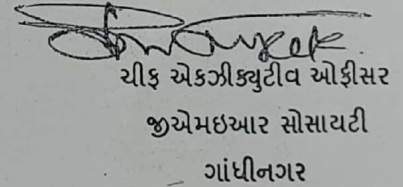 ચીફ એકઝીક્યુટીવ ઓફીસર
જીએમઇઆર સોસાયટી
ગાંધીનગર